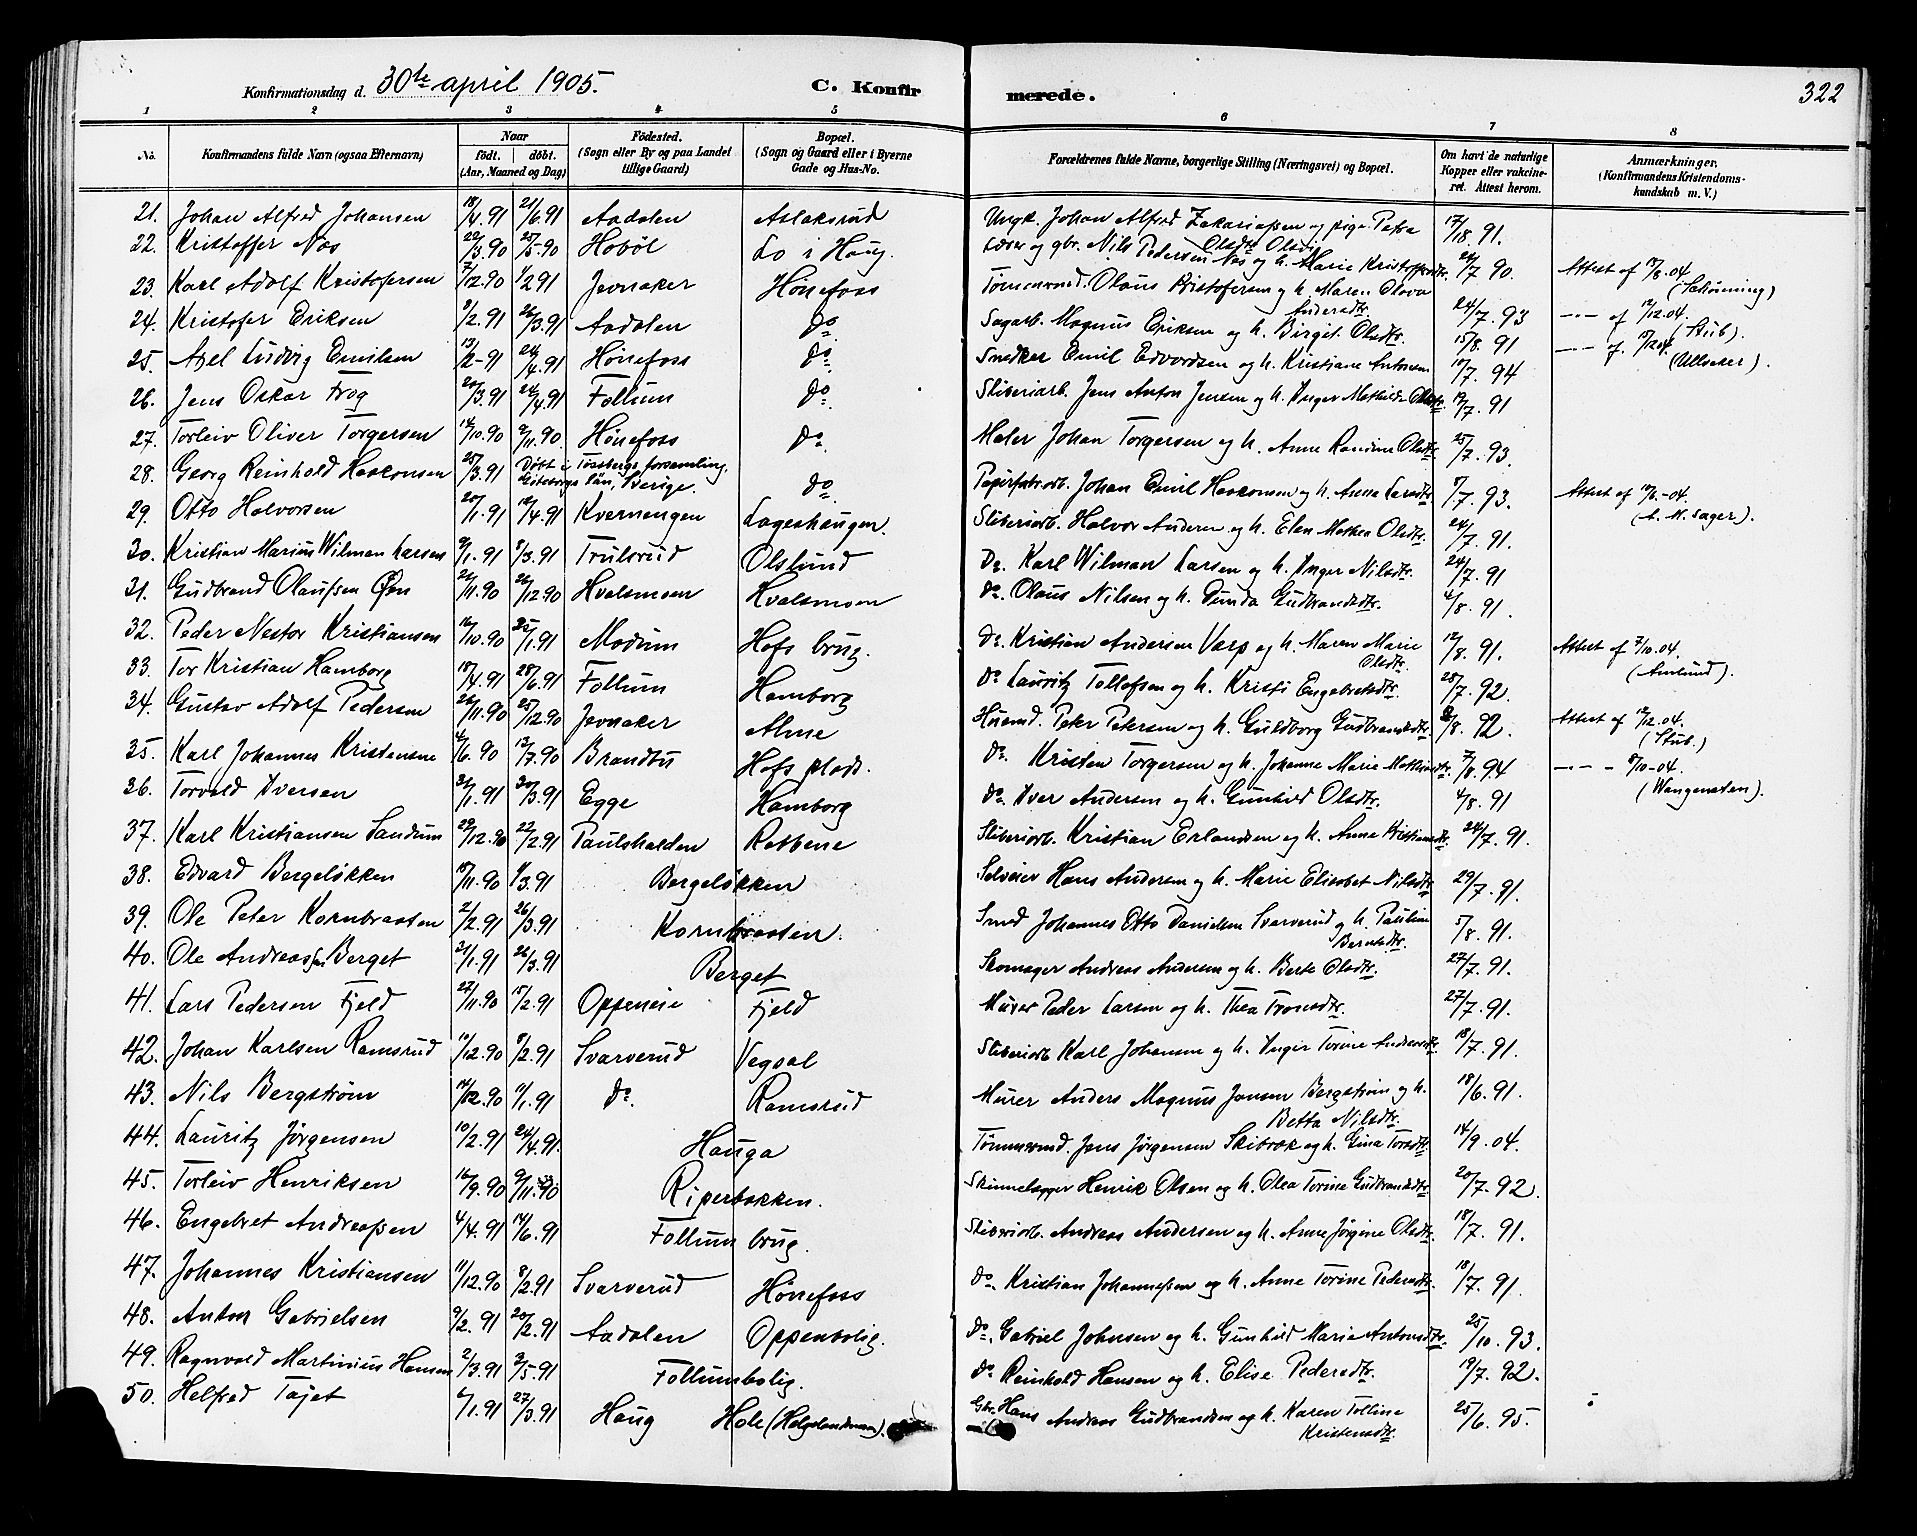 Konfirmationsdag d. 30te april 1905. C. Konfirmerede. 322
1 2 3 4 5 6 7 8
No. Konfirmandens fulde Navn (ogsaa Efternavn) Naar födt. döbt. (Aar, Maaned og Dag) Födested. (Sogn eller By og paa Landet tillige Gaard) Bopæl. (Sogn og Gaard eller i Byerne Gade og Hus-No. Forældrenes fulde Navne, borgerlige Stilling (Næringsvei) og Bopæl. Om havt de naturlige Kopper eller vakcineret. Attest herom. Anmærkninger. (Konfirmandens Kristendomskundskab m. V.)
21. Johan Alfred Johansen 18/4.91 21/6.91 Aadalen Aslaksrud Ungk. Johan Alfred Zakariassen og pige Petra Olsdtr. 17/18 91.
22. Kristoffer Næs 22/3.90 25/5.90 Hobøl Lo i Haug. Lærer og gbr. Nils Pedersen Næs og h. Marie Kristoffersdtr. 24/7 90.
23. Karl Adolf Kristofersen 7/12.90 1/2 91 Jevnaker Hønefoss Tømmermd. Olaus Kristofersen og h. Maren Olava Andersdtr. 24/7. 93 Attest af 17/8.04 (Schøning)
24. Kristofer Eriksen 2/2.91 26/3.91 Aadalen Do. Sagarb. Magnus Eriksen og h. Birgit Olsdtr. 15/8. 91 —"— af 12/12.04. (Stub).
25. Axel Ludvig Emilsen 13/2-91 24/4.91 Hønefoss Do. Snedker Emil Edvardsen og h. Kristiane Antonsen 10/7. 94 —"— af (Ullsaker).
26. Jens Oskar Frog 20/3.91 24/4.91 Follum Do. Sliberiarb. Jens Anton Jensen og h. Inger Mathilde Olsdtr. 19/7. 91
27. Torleiv Oliver Torgersen 14/10.90 9/11.90 Hønefoss Do. Maler Johan Torgersen og h. Anne Randine Olsdtr. 25/7. 93.
28. Georg Reinhold Haakonsen 25/3.91 Døbt i Tössbergs forsamling, Göteborgs län, Sverige. Do. Papirfabrarb. Johan Emil Haakonsen og h. Anna Larsdtr. 7.93. Attest af (A. M. Sager).
29. Otto Halvorsen 20/1.91 12/4.91 Kvernengen Lageshaugen. Sliberiarb. Halvor Andersen og h. Elen Mathea Olsdtr. 24/7. 91.
30. Kristian Marius Wilman Larsen 9/1.91 8/3.91 Trulsrud Olslund Do. Karl Wilman Larsen og h. Inger Nilsdtr. 24/7. 91
31. Gudbrand Olaussen Øen 26/11.90 26/12.90 Hvalsmoen Hvalsmoen do. Olaus Nilsen og h. Gunda Gudbrandsdtr. 4/8. 91.
32. Peder Nestor Kristiansen 16/10.90 25/1.91 Modum Hofs brug. Do. Kristian Andersen Varp og h. Maren Marie Olsdtr. 12/8. 91. Attest af 7/10.04 (Amlund).
33. Tor Kristian Hamborg 18/4.91 28/6.91 Follum Hamborg Do Lauritz Tollefsen og h. Kristi Engebretsdtr. 28/7. 92.
34. Gustav Adolf Pedersen 26/11.90 25/12.90 Jevnaker Alme Husmd. Peter Petersen og h. Guldborg Gudbrandsdtr. 8. 92. Attest af 12/12.04. (Stub.)
35. Karl Johannes Kristensne 4/6.90 13/7.90 Brandbu Hofs plads. Do. Kristen Torgersen og h. Johanne Marie Mathisdtr. 7/8. 94 —"— - 8/10-04. (Wangensten).
36. Torvald Iversen 31/1.91 30/3.91 Egge Hamborg do. Iver Andersen og h. Gunhild Olsdtr. 4/8. 91
37. Karl Kristiansen Sandum 29/12.90 22/2.91 Paulshalden Ratbene Sliberiarb. Kristian Erlandsen og h. Anne Kristiansdtr. 24/7. 91.
38. Edvard Bergeløkken 18/11.90 1/3.91 Bergeløkken Selveier Hans Andersen og h. Marie Elisabet Nilsdtr. 29/7. 91.
39. Ole Peter Kornbraaten 2/2.91 26/3.91 Kornbraaten. Smed Johannes Otto Danielsen Svarverud og h. Pauline Berntsdtr. 5/8. 91.
40. Ole Andreassen Berget 21/1.91 26/3.91 Berget Skomager Andreas Andersen og h. Berte Olsdtr. 27/7. 91.
41. Lars Pedersen Fjeld 27/11.90 15/2.91 Oppeneie Fjeld Murer Peder Larsen og h. Thea Tronsdtr. 27/7. 91.
42. Johan Karlsen Ramsrud 10/12.90 8/2.91 Svarverud Vegsal Sliberiarb Karl Johansen og h. Inger Torine Andersdtr 18/7. 91.
43. Nils Bergstrøm 14/12.90 11/1.91 Do. Ramsrud Murer Anders Magnus Jansen Bergstrøm og h. Betta Nilsdtr. 18/6. 91.
44. Lauritz Jørgensen 10/2.91 24/4.91. Hauga Tømmermd. Jens Jørgensen Skibrak og h. Gina Torsdtr. 14/9. 04.
45. Torleiv Henriksen 16/9.90 9/11.90 Riperbakken. Henrik Olsen og h. Olea Torine Gudbrandsdtr. 20/7. 92.
46. Engebret Andreassen 4/4.91 14/6.91 Follum brug. Sliberiarb. Andreas Andersen og h. Anne Jørgine Olsdtr. 18/7. 91.
47. Johannes Kristiansen 11/12.90 8/2.91 Svarverud Hønefoss do. Kristian Johannessen og h. Anne Torine Pedersdtr. 18/7. 91.
48. Anton Gabrielsen 9/2.91 20/2.91 Aadalen Oppenbolig. do. Gabriel Johnsen og h. Gunhild Marie Antonsdtr. 25/10. 93.
49. Ragnvald Martinius Hansen 2/3.91 3/5.91 Follumbolig. do Reinhold Hansen og h. Elise Pedersdtr. 19/7. 92.
50. Helfred Tajet 6/1.91 27/3.91 Haug Hole (Helgelandsmoen). Gbr. Hans Andreas Gudbrandsen og h. Karen Tolline Kristensdtr. 25/6. 95.